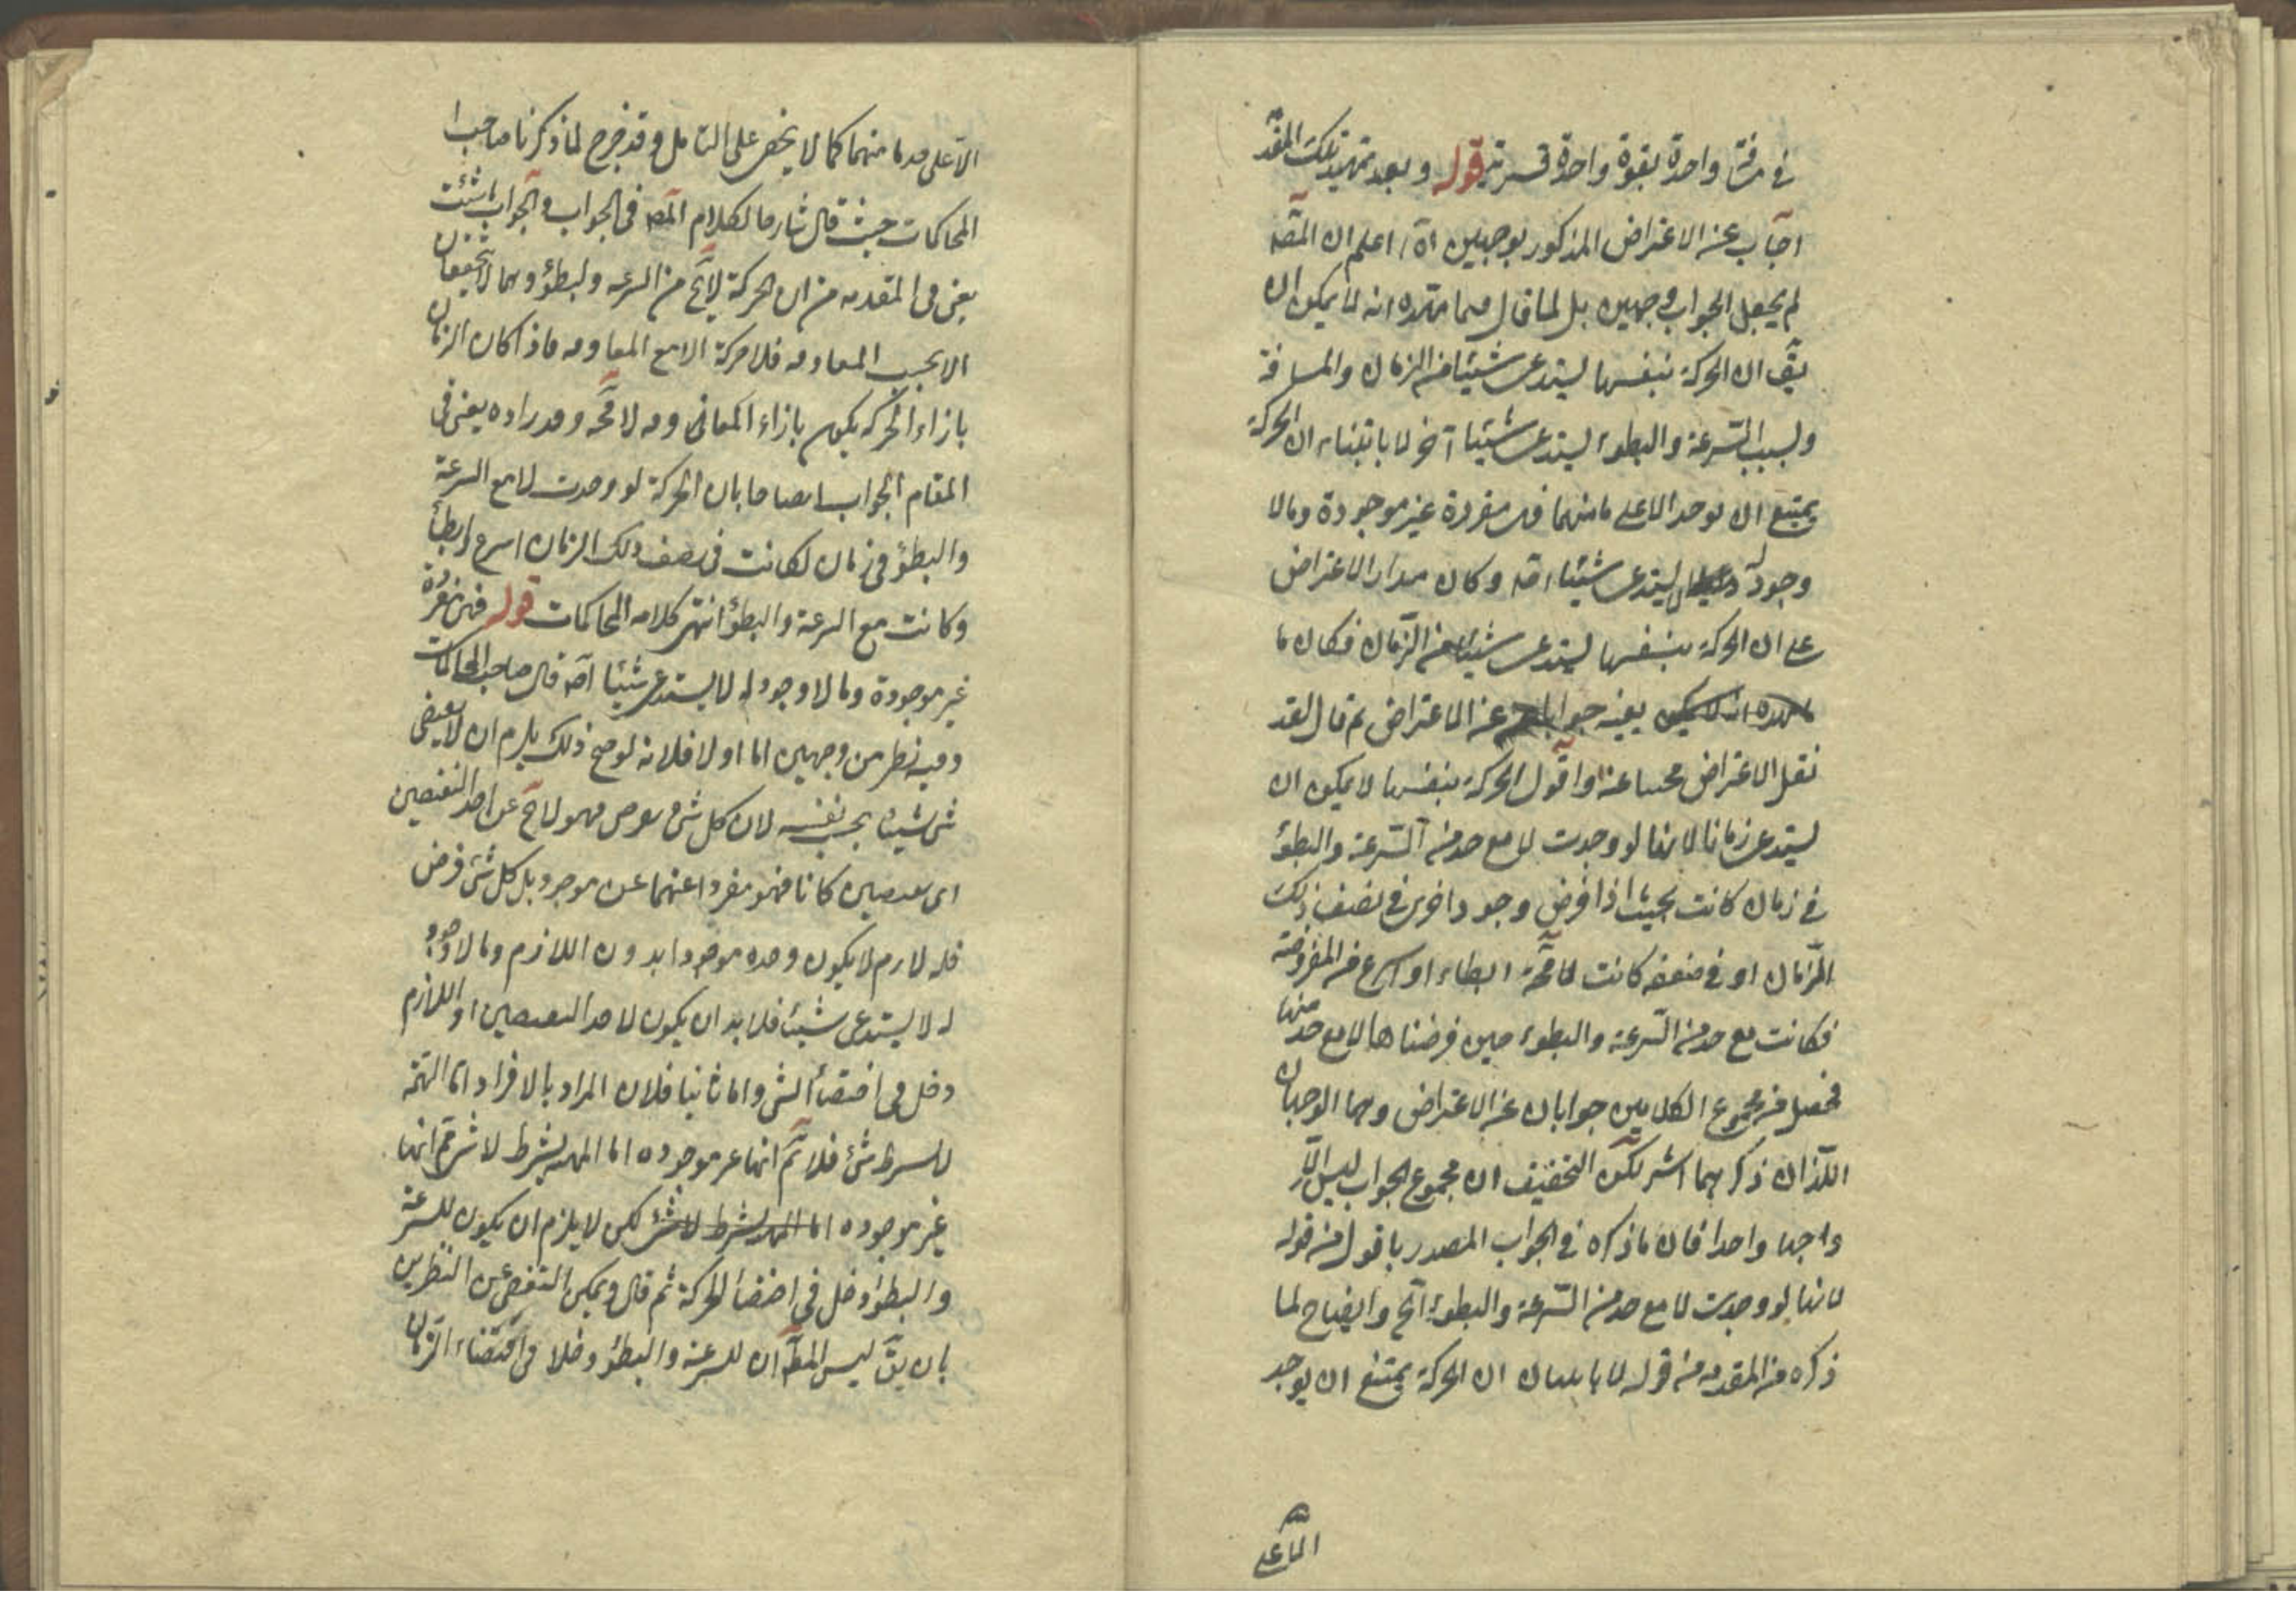 في مسافة واحدة بقوة واحدة قسرية قوله وبعد تمهيد تلك المقد
اجاب عن الاعتراض المذكور بوجهين اه اعلم ان المص
لم يجعل الجواب وجهين بل لما قال فيما مهده انه لا يمكن ان
يق ان الحركة بنفسها يستدعى شيئا من الزمان والمسافة
وبسبب السرعة والبطوء يستدعى شيئا آخر لما بينا ان الحركة
يمتنع ان يوجد الا على ما منهما فهى مفردة غير موجودة وما لا
وجود له لا يستدعى شيئا اصه وكان مدار الاعتراض
على ان الحركة بنفسها يستدعى شيئا من الزمان فكان ما
بعينه جوابا عن الاعتراض ثم قال لقد
نقل الاعتراض مجيبا عنه واقول الحركة بنفسها لا يمكن ان
يستدعى زمانا لانها لو وجدت لا مع حد من السرعة والبطؤ
في زمان كانت بحيث اذا فرض وجود اخرى في نصف ذلك
الزمان او في ضعفه كانت لا محة ابطاء او اسرع من المفروضة
فكانت مع حد من السرعة والبطوء حين فرضناها لا مع حد منها
فحصل من مجموع الكلامين جوابان عن الاعتراض وهما الوجهان
اللذان ذكرهما الش لكن التحقيق ان مجموع الجواب ليس الا
واجها واحدا فان ما ذكره في الجواب المصدر باقول من قوله
لانها لو وجدت لا مع حد من السرعة والبطوء الخ وايضاح لما
ذكره من المقدمه من قوله لما بان ان الحركة يمتنع ان يوجد
الا على
الا على حد ما منهما كما لا يخفى على التامل وقد خرج لما ذكرنا صاحب
المحاكمات حيث قال شارحا لكلام المص فى الجواب والجواب ان شئت
يعنى فى المقدمه من ان الحركة لا يخ من السرعه والبطؤ وهما لا يتحققان
الا بحسب المعاوقه فلا حركة الا مع المعاوقه فاذا كان الزمان
بازاء الحركه يكون بازاء المعاوقه لا محه وقد زاده يعنى فى
المقام الجواب ايضاحا بان الحركة لو وجدت لا مع السرعة
والبطؤ فى زمان لكانت فى نصف ذلك الزمان اسرع او ابطأ
وكانت مع السرعة والبطؤ انتهى كلام المحاكمات قوله فهى مفردة
غير موجودة وما لا وجود له لا يستدعى شيئا اصه قال صاحب المحاكمات
وفيه نظر من وجهين اما اولا فلانه لو صح ذلك يلزم ان لا يقتضى
شى شيئا بحسب نفسه لان كل شئ يعرض فهو لا يخ عن احد النقيضين
اى نقيضين كانا فهو مفردا عنهما غير موجود بل كل شئ فرض
فله لازم لا يكون وحده موجودا بدون اللازم وما لا وجود
له لا يستدعى شيئا فلا بد ان يكون لاحد النقيضين او اللازم
دخل فى اقتضاء الشى واما ثانيا فلان المراد بالافراد اما المهية
لا بشرط شئ فلا ثم انها غير موجوده اما المهيه بشرط لا شئ فثم انها
غير موجوده لكن لا يلزم ان يكون للسرعة
والبطؤ دخل فى اقتضا الحركة ثم قال ويمكن التفصى عن النظرين
بان يق ليس المط ان للسرعة والبطؤ دخلا فى اقتضاء الزمان